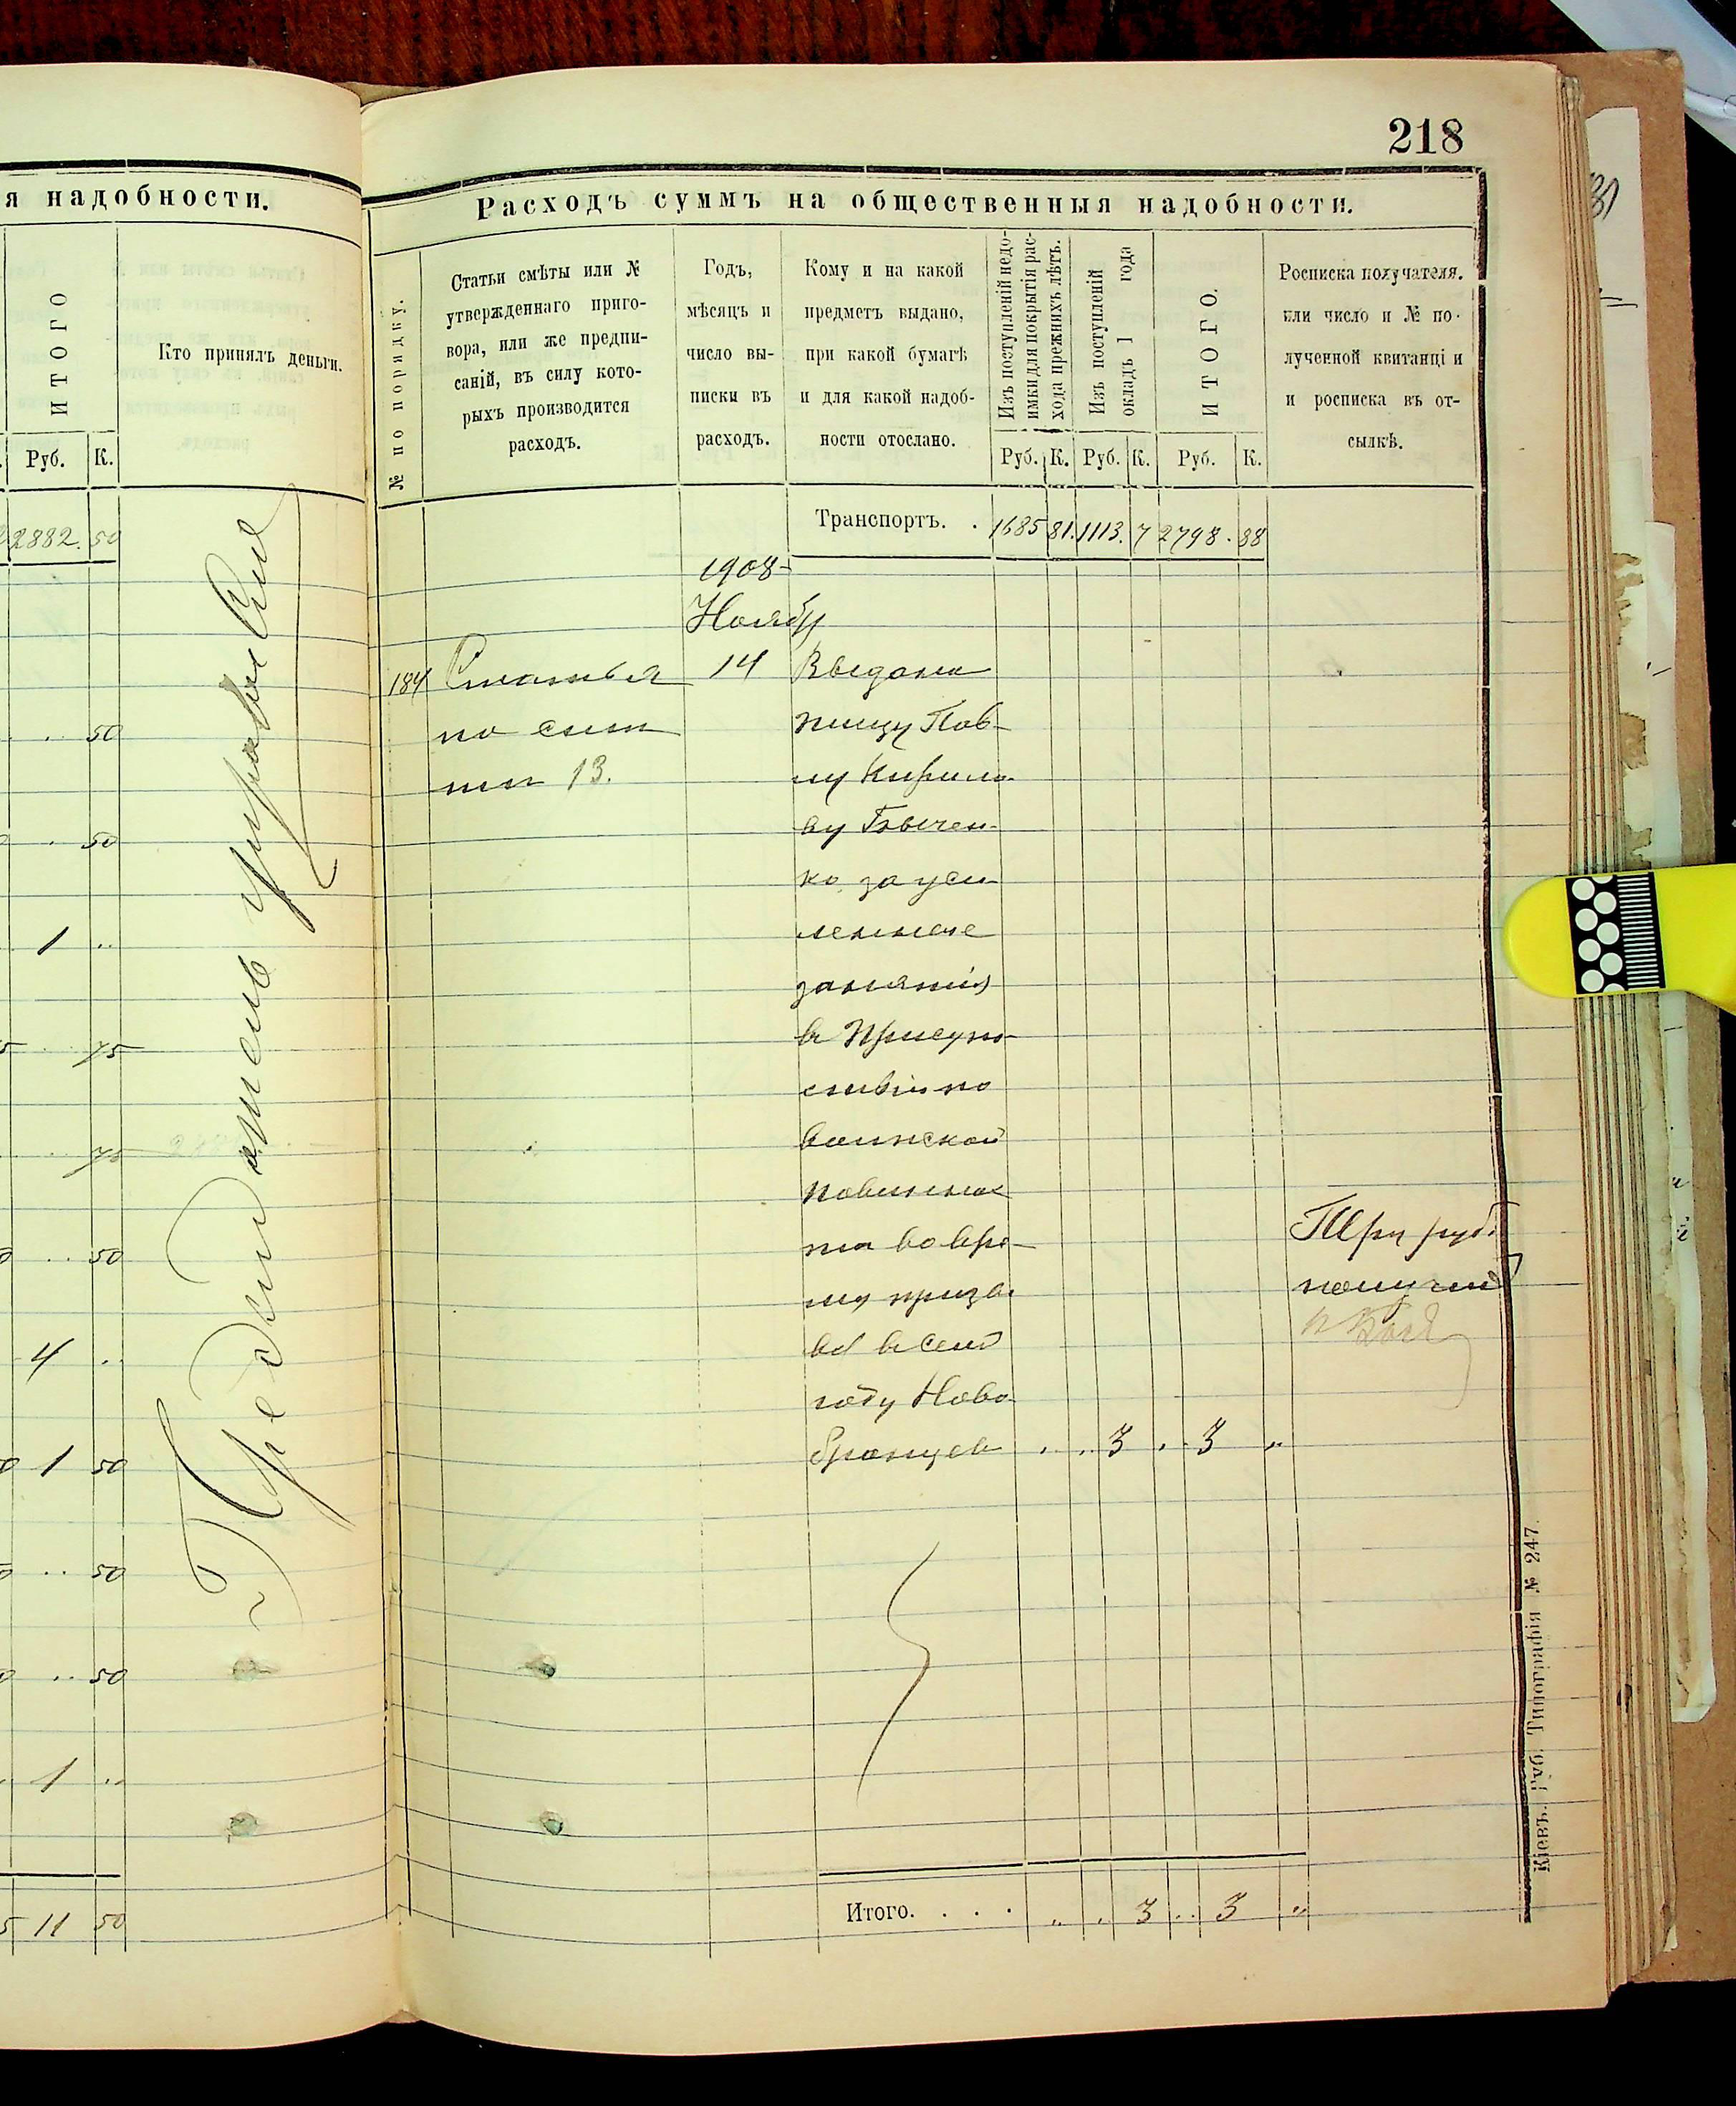 218
я надобности.
ИТОГО
Кто принялъ деньги.
Руб. К.
2882. 50
. 50
. 50
1 ..
75
75
.. 50
4 ..
1 50
.. 50
.. 50
1 ..
11 50
Расходъ суммъ на общественныя надобности.
№ по порядку.
Статьи смѣты или №
утвержденнаго приго-
вора, или же предпи-
саній, въ силу кото-
рыхъ производится
расходъ.
Годъ,
мѣсяцъ и
число вы-
писки въ
расходъ.
Кому и на какой
предметъ выдано,
при какой бумагѣ
и для какой надоб-
ности отослано.
Изъ поступленій недо-
имки для покрытія рас-
хода прежнихъ лѣтъ.
Изъ поступленій
окладъ 1 года
ИТОГО.
Росписка получателя.
или число и № по-
лученной квитанціи
и росписка въ от-
сылкѣ.
Руб. К. Руб. К. Руб. К.
Транспортъ. . 1685 81. 1113. 7 2798. 88
1908
Ноябр
184 Статья 14 Выдано
по смѣ
тѣ 13.
писцу Пав-
лу Кирило-
ву
ко за уси-
ленные
занятія
в Присут-
ствіи по
воинской
повиннос
ти во вре-
мя призы
ва в семъ
году Ново
бранцев . .. 3 . . 3 „
Три руб.
получил
Итого. . . . „ . 3 .. 3 „
Кіевъ. Губ. Типографія № 247.